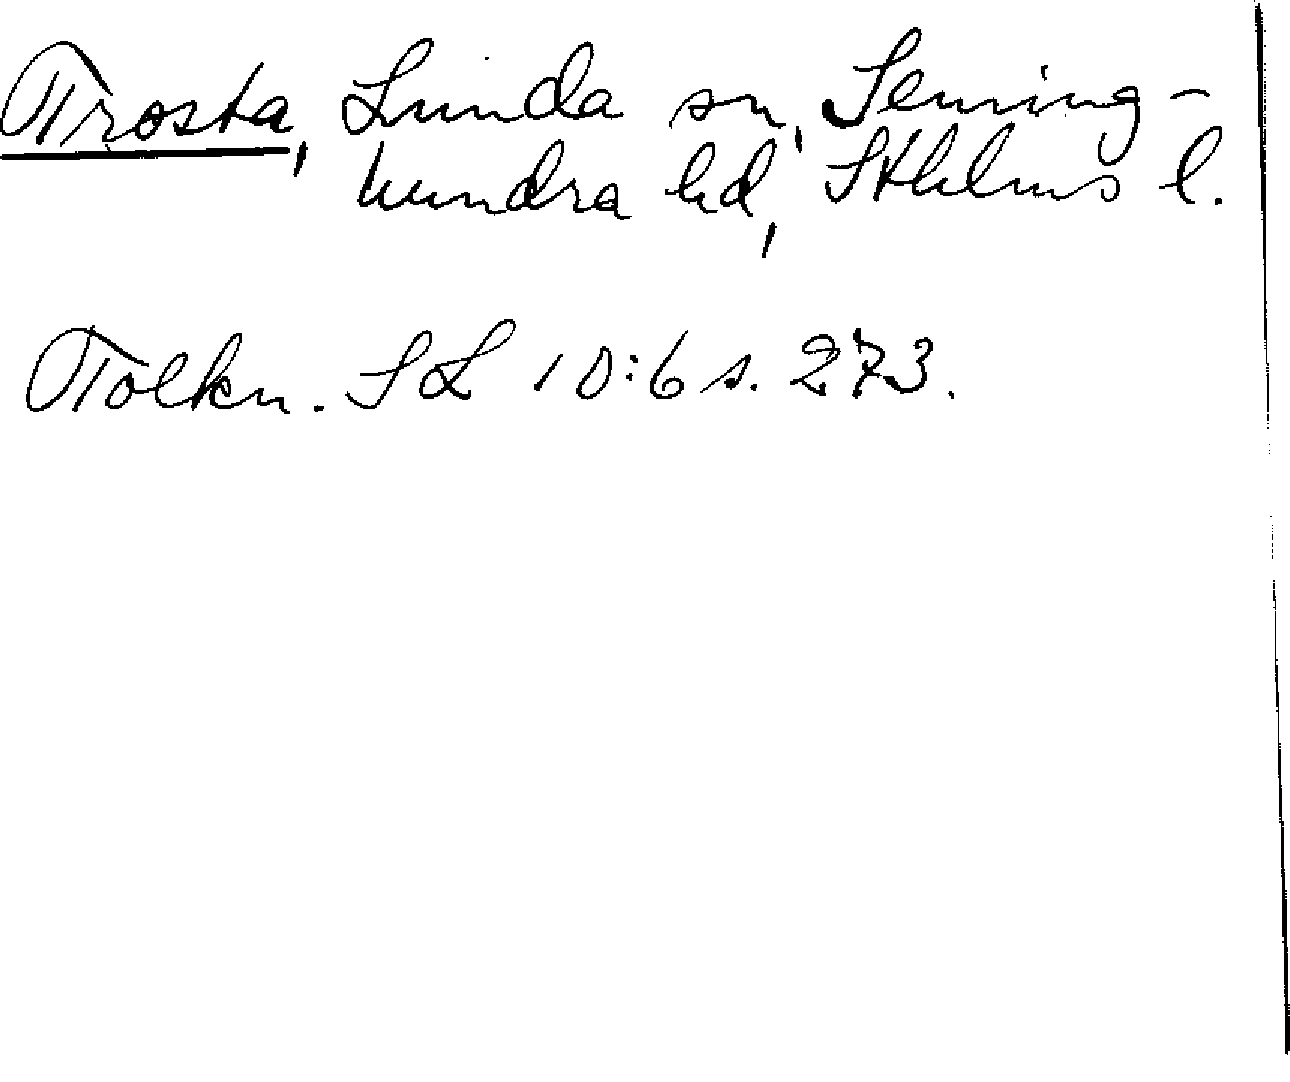 Trosta, Lunda sn, Seming-
hundra hd, Sthlms l.
Tolkn. SL 10:6 s. 273.